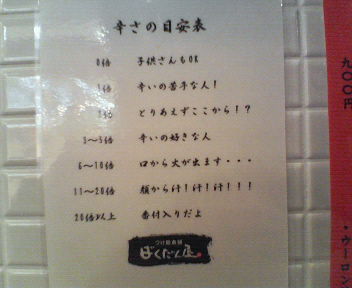 辛さの目安表
0倍 子供さんもOK
1倍 辛いの苦手な人!
2倍 とりあえずここから!?
3〜5倍 辛いの好きな人
6〜10倍 口から火が出ます・・・
11〜20倍 顔から汗!汗!汗!!!
20倍以上 番付入りだよ
つけ麺本舗
ばくだん屋
九〇〇円
・ウーロン